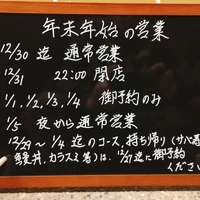 年末年始の営業
12/30 迄 通常営業
12/31 22:00 閉店
1/1, 1/2, 1/3, 1/4 御予約のみ
1/5 夜から通常営業
12/29 〜 1/4 迄のコース, 持ち帰り (サバ寿
丼, カラスミ 等) は、12/27 迄に御予約
ください